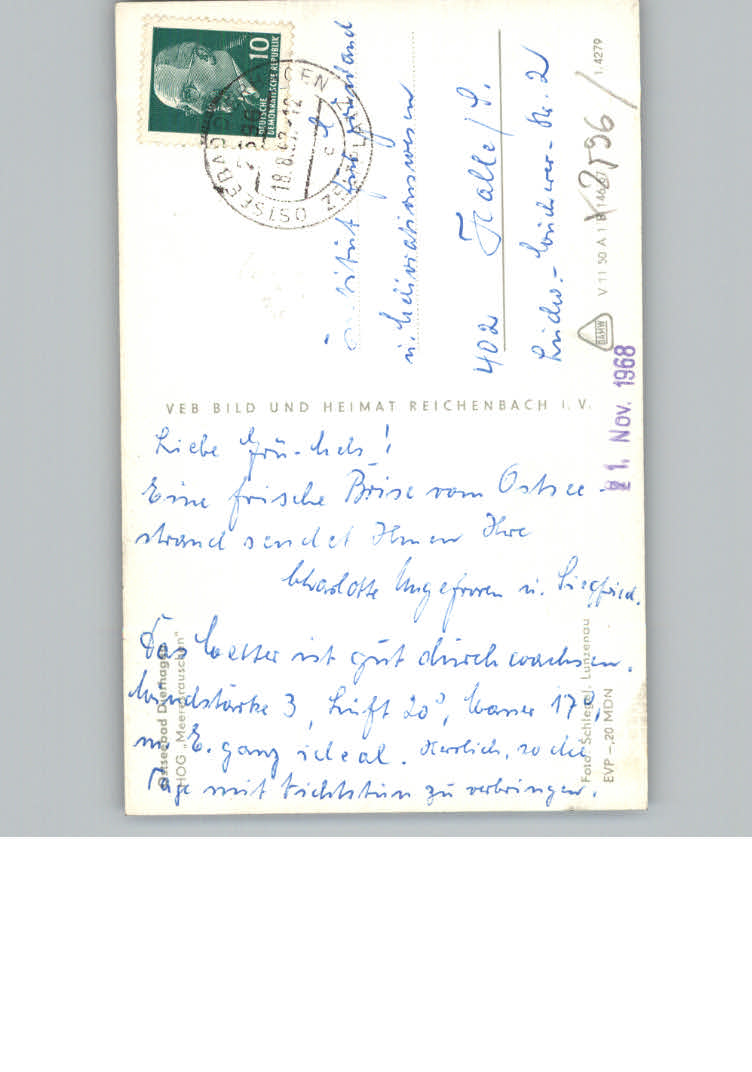 10
DEUTSCHE
DEMOKRATISCHE REPUBLIK
OSTSEEBAD
18.8.
für
u.
402 Halle/S.
2
1.4279
V 11 50 A 1 B
DAMW
VEB BILD UND HEIMAT REICHENBACH I. V.
21. Nov. 1968
Liebe
Eine frische Brise vom Ostsee-
strand sendet Ihnen Ihre
Charlotte Ungefroren u. Siegfried.
Das Wetter ist gut durchwachsen.
Windstärke 3, Luft 20°, Wasser 17°,
m. E. ganz ideal. Herrlich, so die
Tage mit Nichtstun zu verbringen.
Ostseebad Dierhagen
HOG „Meeresrauschen"
Foto: Schlegel, Lunzenau
EVP –,20 MDN